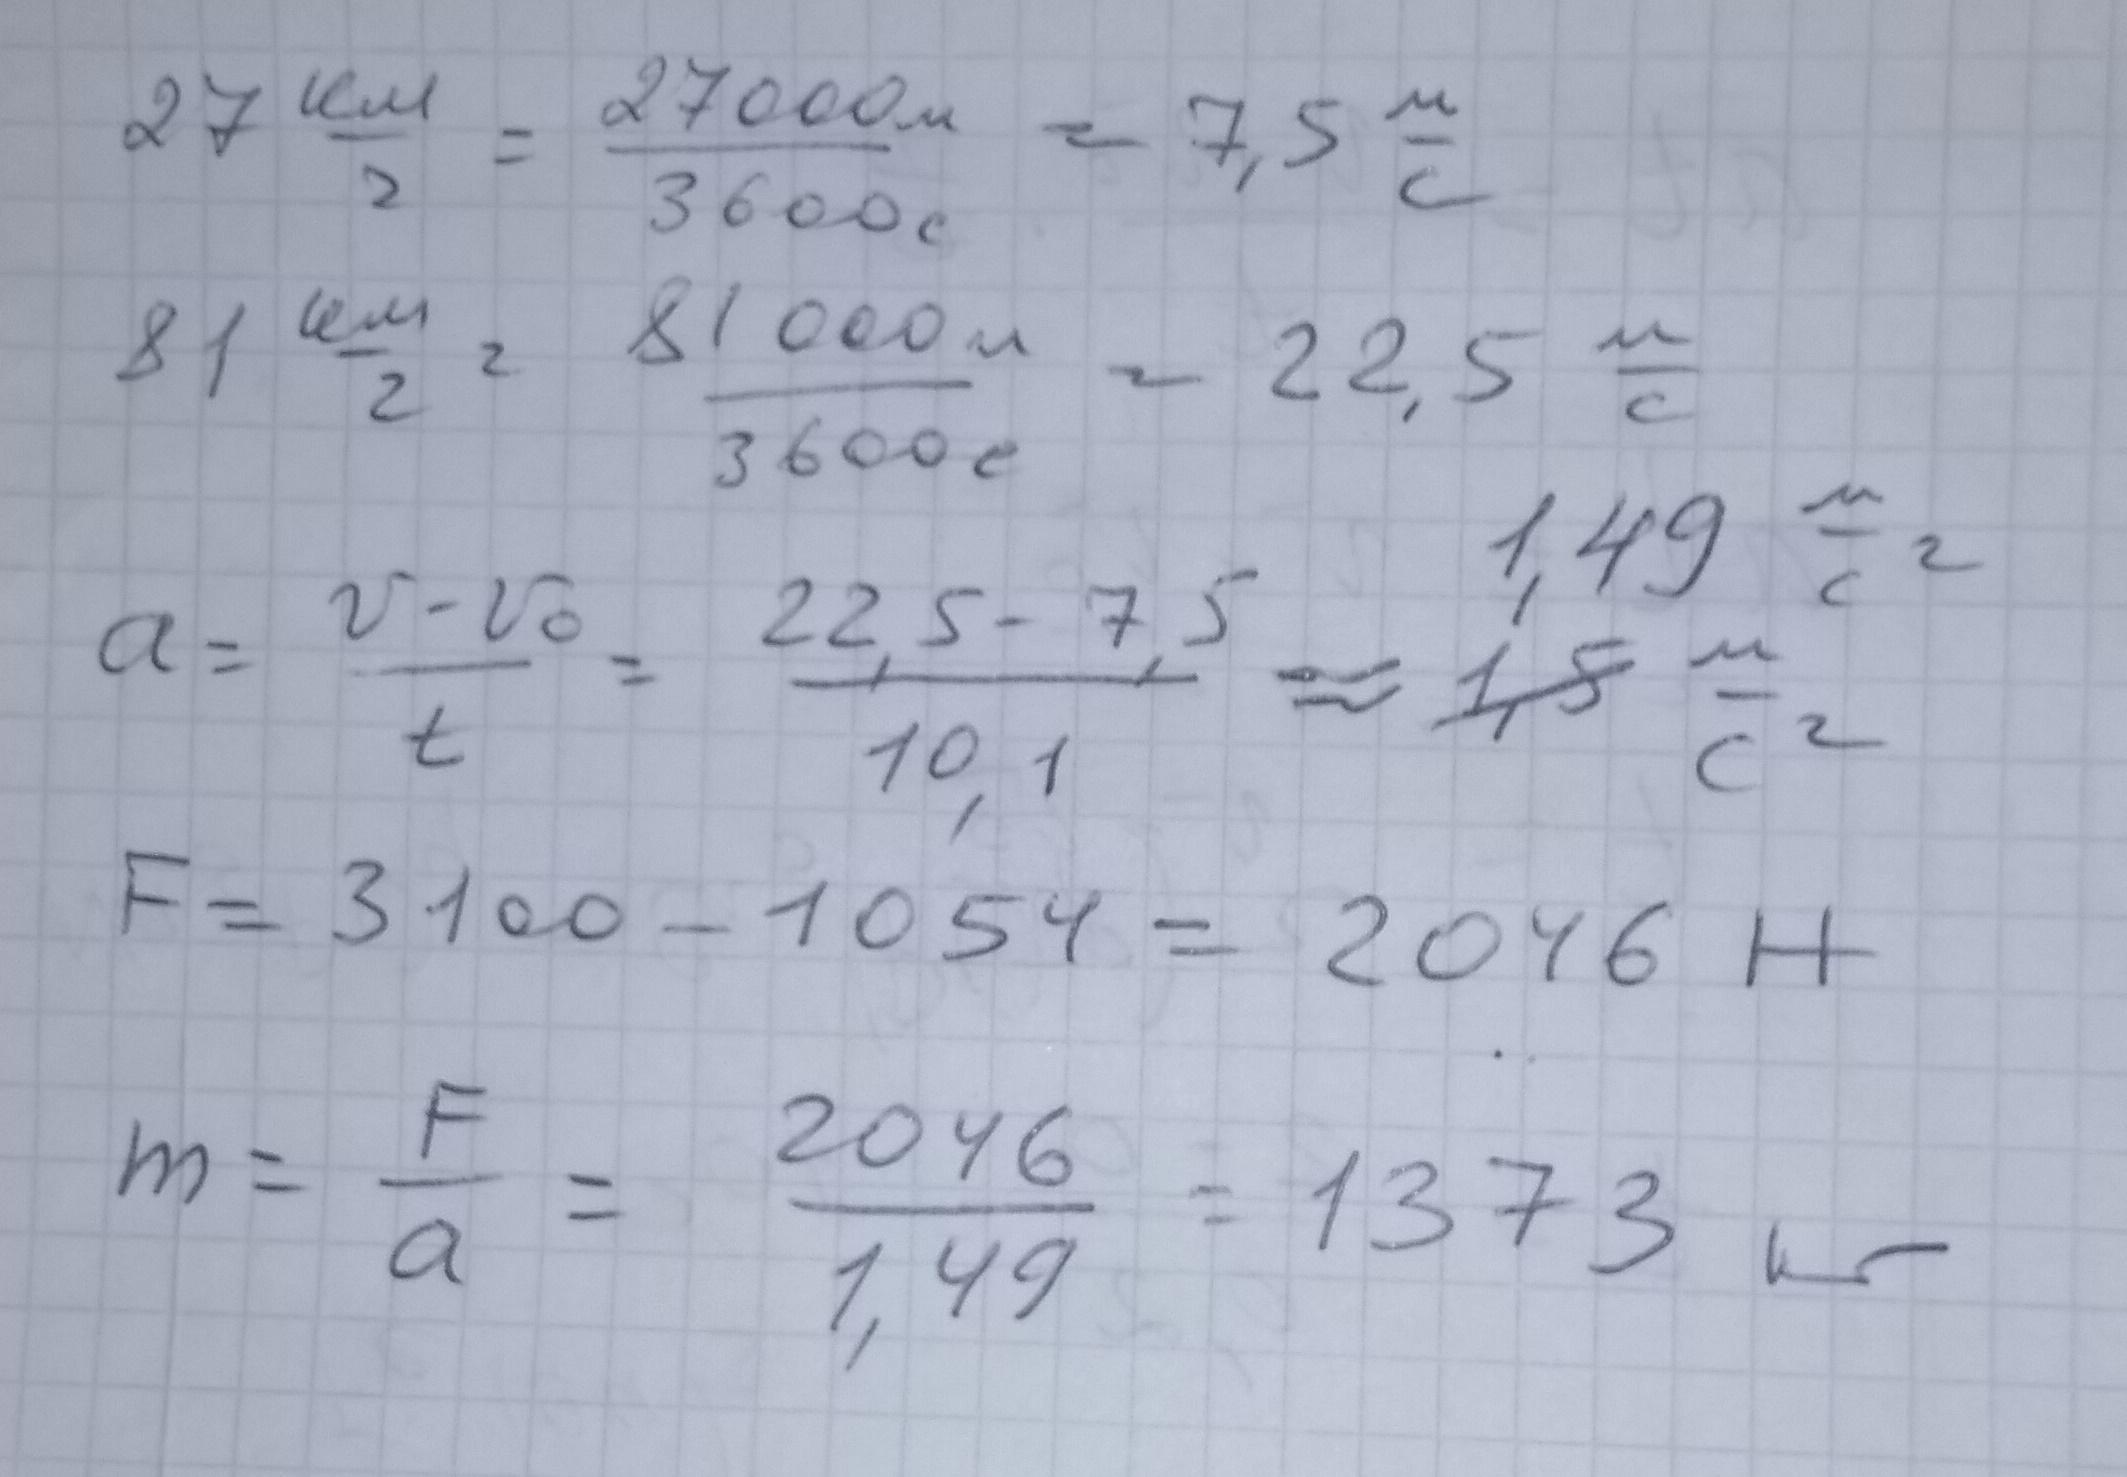 27 км/г = 27000м/3600с = 7,5 м/с
81 км/г = 81000м/3600с = 22,5 м/с
1,49 м/с²
a = v-v₀/t = 22,5-7,5/10,1 ≈ ~~1,5~~ м/с²
F = 3100 - 1054 = 2046 Н
m = F/a = 2046/1,49 = 1373 кг